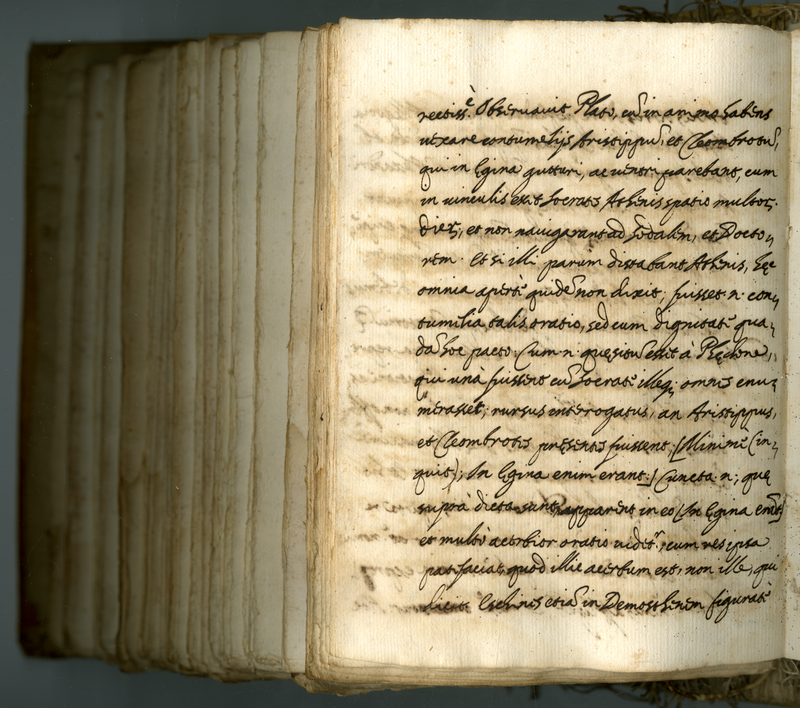 rectiss.è Observavit Plato, cū in animo habens
vexare contumelijs Aristippū, et Cleombrotū,
qui in Egina gutturi, ac ventri parebant, cum
in vinculis esset Socrates Athenis spatio multor.
dier, et non navigarant ad sodalem, et Docto,,
rem. Et si illi parum distabant Athenis, hęc
omnia apertè quidē non dixit; fuisset .n. con,,
tumilia talis oratio, sed cum dignitate qua,,
dā hoc pacto. Cum .n. quęsitū esset à Phędone,,
qui unà fuissent cū Socrate illeq; omnes enu,,
merasset; rursus interrogatus, an Aristippus,
et Cleombrotus pręsentes fuissent; [Minimè (in,,
quit); In Egina enim erant.] Cuncta .n., quę
suprà dicta sunt, apparent in eo [In Egina erāt]
et multò acerbior oratio videtr, cum res ipsa
patefaciat quod illic acerbum est, non ille, qui
dicit. Eschines etiā in Demosthenem figuratè